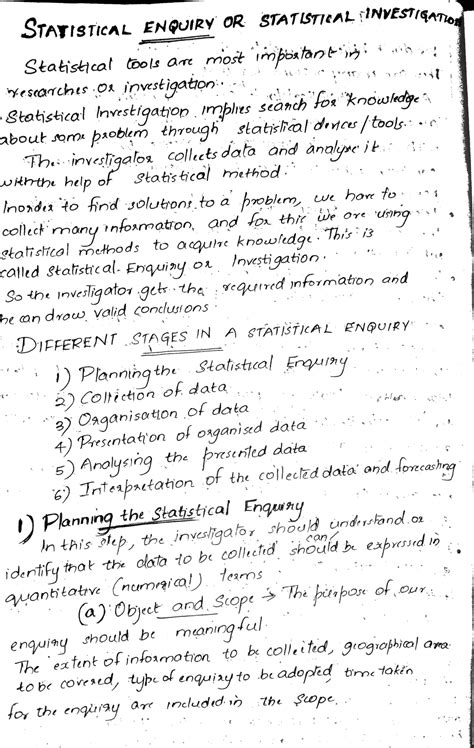 STATISTICAL ENQUIRY OR STATISTICAL INVESTIGATION
Statistical tools are most important in
researches or investigation.
Statistical Investigation implies search for knowledge
about some problem through statistical devices/tools.
The investigator collects data and analyse it
with the help of Statistical method.
Inorder to find solutions to a problem, we have to
collect many information, and for this we are using
statistical methods to acquire knowledge. This is
called Statistical Enquiry or Investigation.
So the investigator gets the required information and
he can draw valid conclusions.
DIFFERENT STAGES IN A STATISTICAL ENQUIRY
1) Planning the Statistical Enquiry
2) Collection of data
3) Organisation of data
4) Presentation of organised data
5) Analysing the presented data
6) Interpretation of the collected data and forecasting
1) Planning the Statistical Enquiry
In this step, the investigator should understand or
identify that the data to be collected should/can be expressed in
quantitative (numerical) terms
(a) Object and Scope → The purpose of our
enquiry should be meaningful.
The extent of information to be collected, geographical area
to be covered, type of enquiry to be adopted, time taken
for the enquiry are included in the Scope.